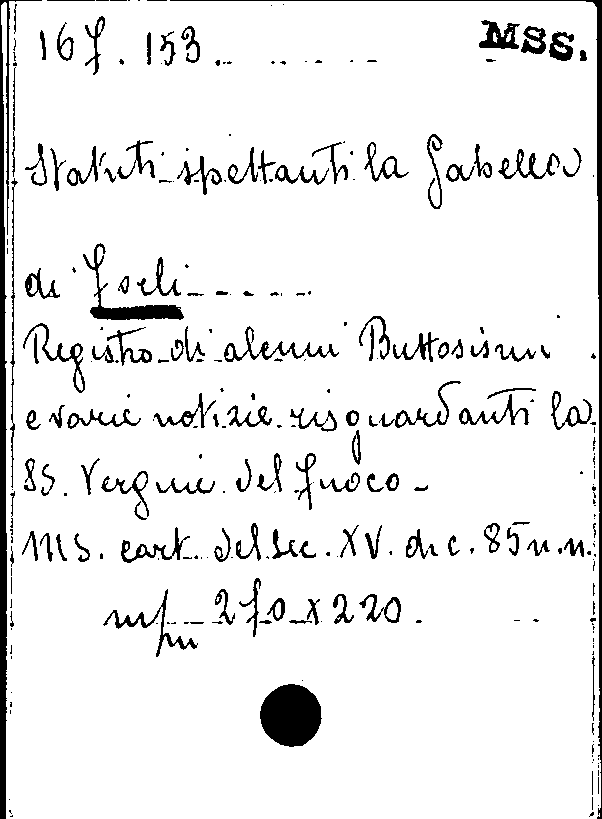 167. 153. MSS.
Statuti spettanti la Gabella
di Forlì
Registro di alcuni Battesimi
e varie notizie risguardanti la
SS. Vergine del fuoco -
MS. cart. del sec. XV. di c. 85 n. n.
m/m 270 x 220.